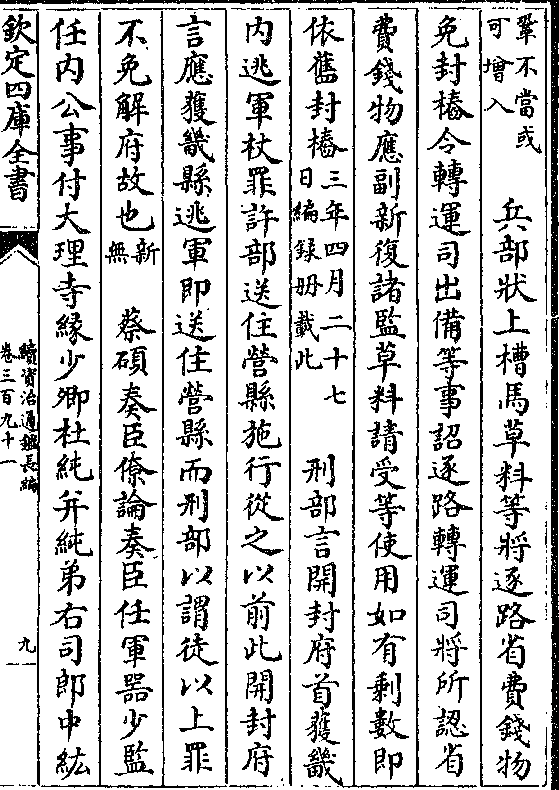 鞏不當或
可增入
兵部狀上槽馬草料等將逐路省費錢物
免封樁令轉運司出備等事詔逐路轉運司將所認省
費錢物應副新復諸監草料請受等使用如有剩數即
依舊封樁三年四月二十七
日編録册載此
刑部言開封府首獲畿
内逃軍杖罪許部送住營縣施行從之以前此開封府
言應獲畿縣逃軍即送住營縣而刑部以謂徒以上罪
不免解府故也新
無
蔡碩奏臣僚論奏臣任軍器少監
任内公事付大理寺緣少卿杜純并純弟右司郎中紘
欽定四庫全書
續資治通鑑長編
卷三百九十一
九